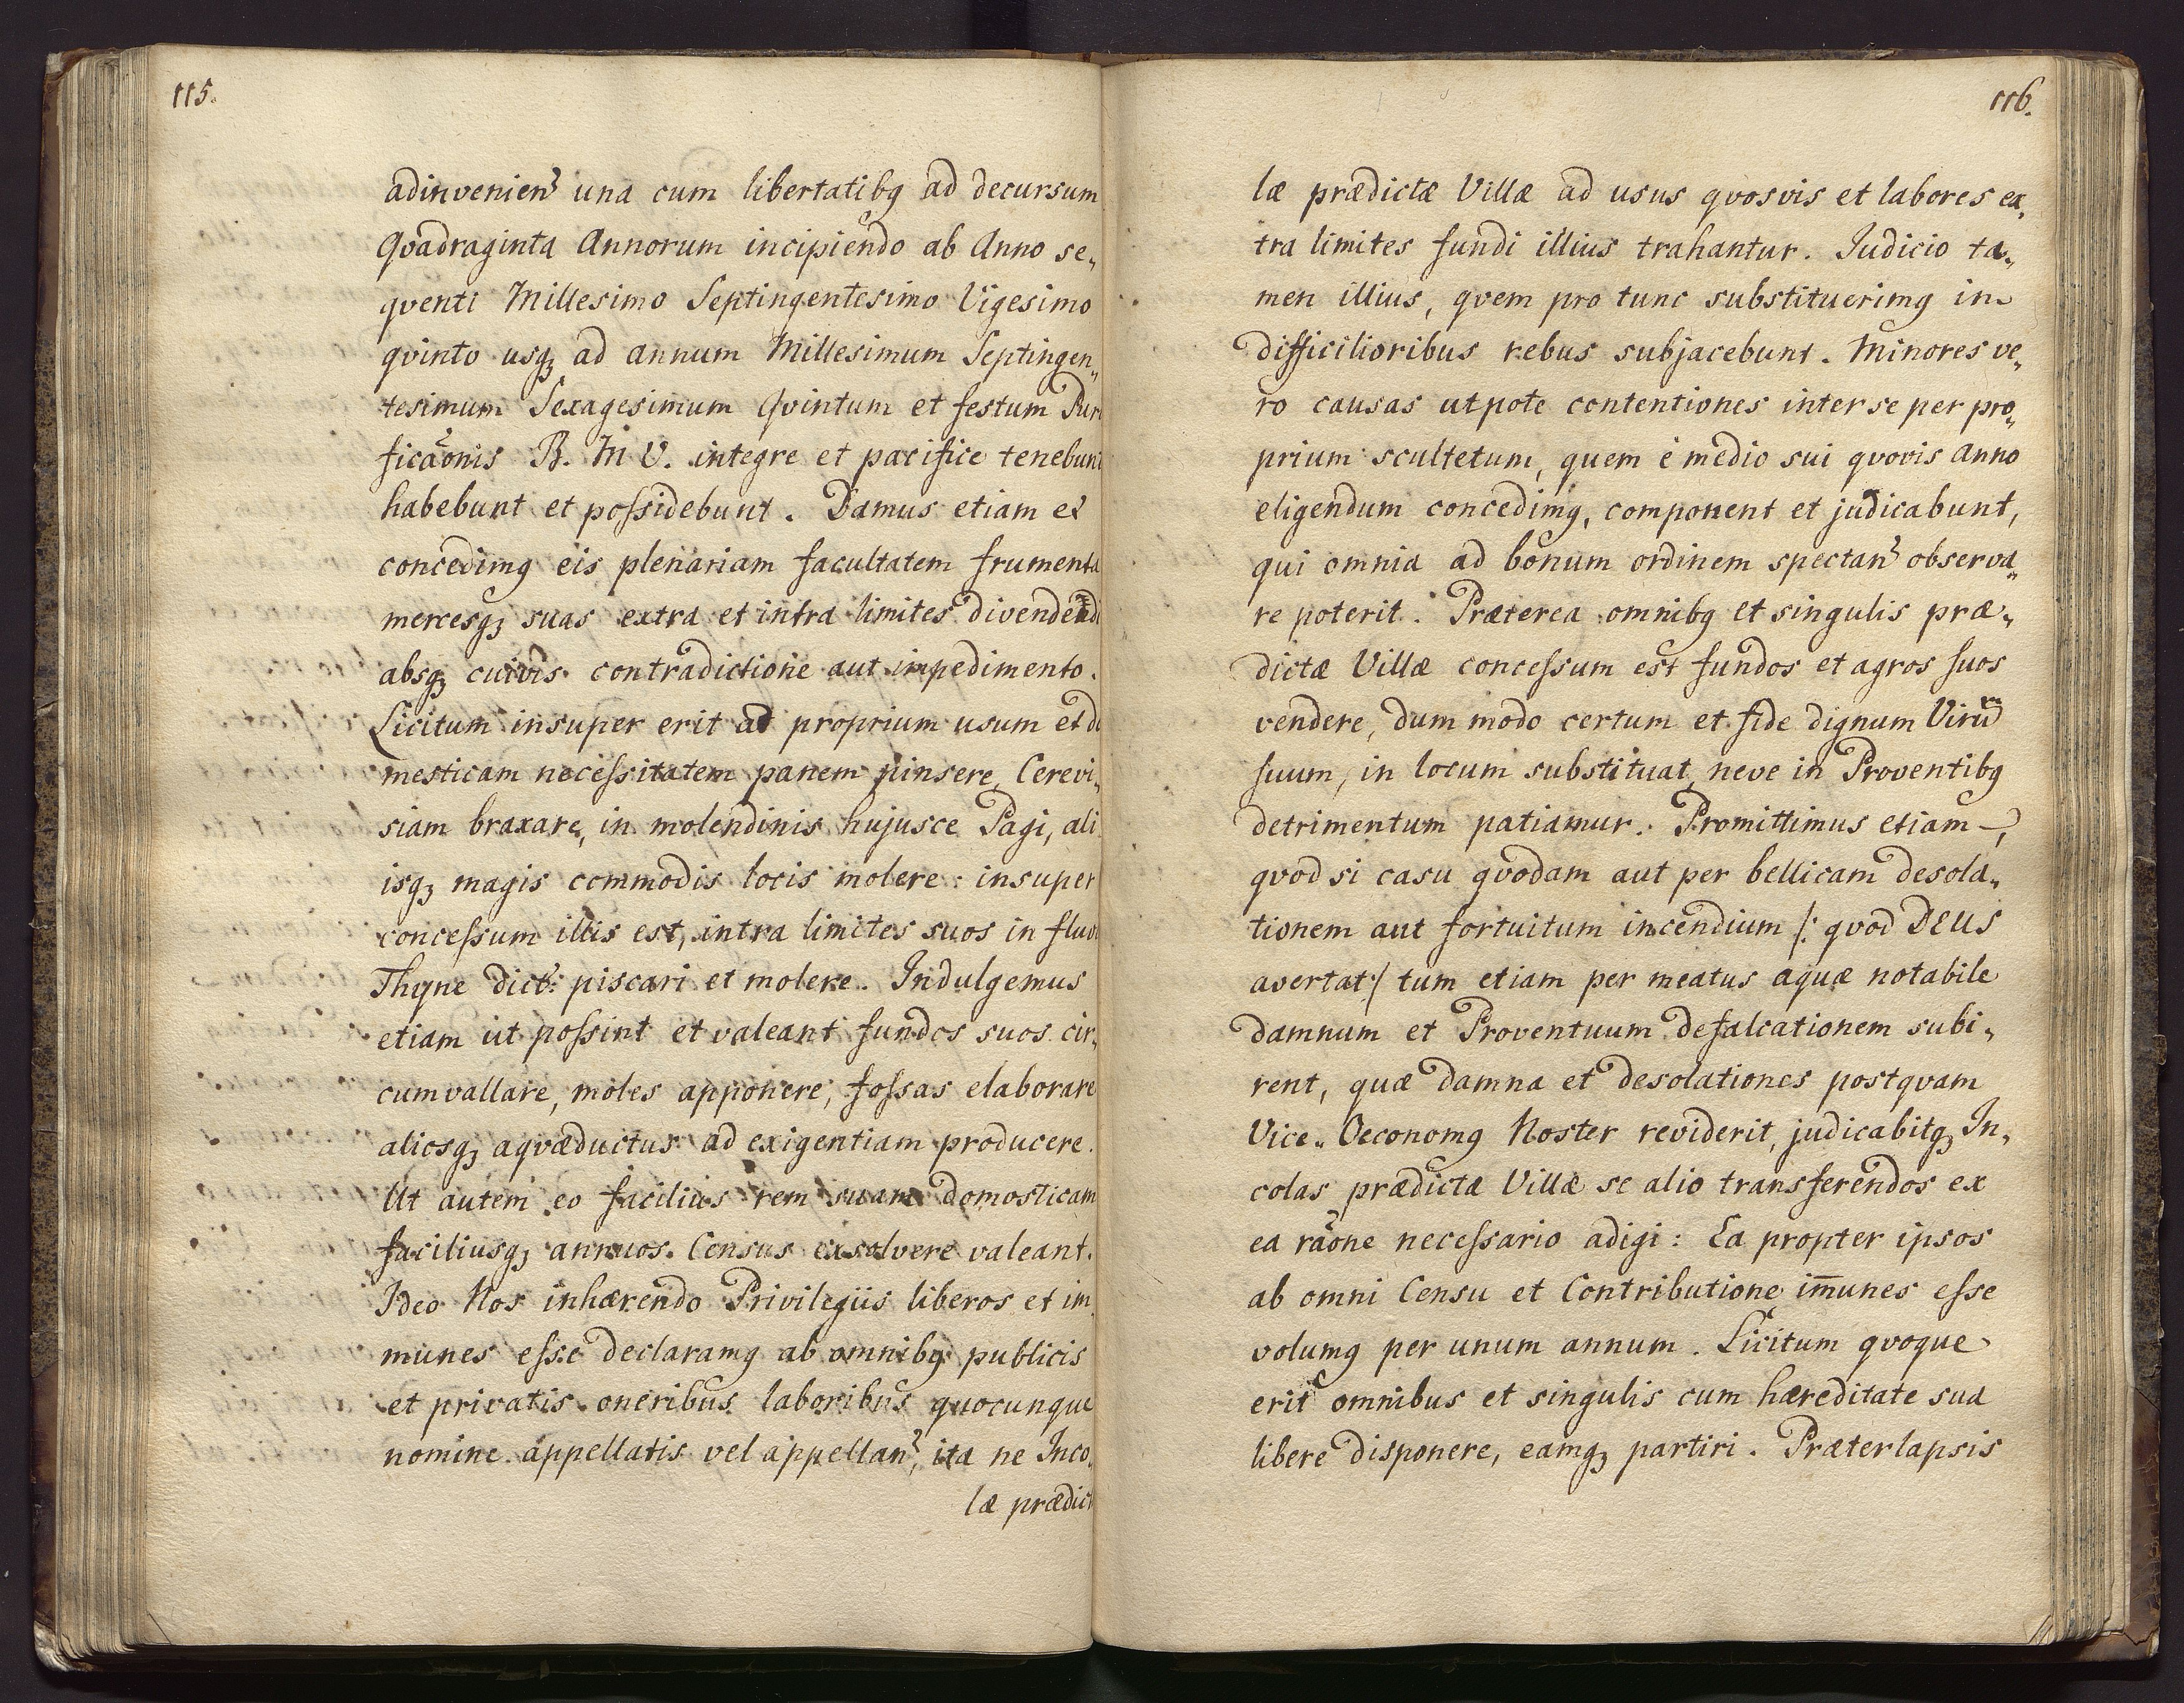 115.
adinvenien̉ una cum libertatibꝯ ad decursum
Qvadraginta Annorum incipiendo ab Anno se„
qventi Millesimo Septingentesimo Vigesimo
qvinto usqꝫ ad annum Millesimum Septingen„
tesimum Sexagesimum Qvintum et festum Puri
ficãonis B. M V. integre et pacifice tenebunt
habebunt et poſsidebunt. Damus etiam et
concedimꝯ eis plenariam facultatem frumenta
mercesqꝫ suas extra et intra limites divendendi
absqꝫ cuivis contradictione aut impedimento.
Licitum insuper erit ad proprium usum et do
mesticam neceſsitatem panem pinsere, Cerevi„
siam braxare, in molendinis hujusce Pagi, ali
isqꝫ magis commodis locis molere: insuper
conceſsum illis est, intra limites suos in fluvi
Thyne dict: piscari et molere. Indulgemus
etiam ut poſsint et valeant fundos suos cir„
cumvallare, moles apponere, foſsas elaborare
aliosqꝫ aqvæductus ad exigentiam producere.
Ut autem eo facilius rem suam domosticam
faciliusqꝫ annuos Census exsolvere valeant.
Ideo Nos inhærendo Privilegiis liberos et im„
munes eſse declaramꝯ ab omnibꝯ publicis
et privatis oneribus laboribus quocunque
nomine appellatis vel appellan̉, ita ne Inco„
læ prædict
116.
læ prædictæ Villæ ad usus qvosvis et labores ex„
tra limites fundi illius trahantur. Judicio ta„
men illius, qvem pro tunc substituerimꝯ in
difficilioribus rebus subjacebunt. Minores ve„
ro causas utpote contentiones inter se per pro„
prium scultetum, quem è medio sui qvovis anno
eligendum concedimꝯ, component et judicabunt,
qui omnia ad bonum ordinem spectan̉ observa„
re poterit. Præterea omnibꝯ et singulis præ„
dictæ Villæ conceſsum est fundos et agros suos
vendere, dum modo certum et fide dignum Virũ
suum, in locum substituat, neve in Proventibꝯ
detrimentum patiamur. Promittimus etiam —,
qvod si casu qvodam aut per bellicam desola„
tionem aut fortuitum incendium /: qvod DEUS
avertat:/ tum etiam per meatus aquæ notabile
damnum et Proventuum defalcationem subi„
rent, quæ damna et desolationes postqvam
Vice„ Oeconomꝯ Noster reviderit, judicabitqꝫ In„
colas prædictæ Villæ se alio transferendos ex
ea rãone neceſsario adigi: Ea propter ipsos
ab omni Censu et Contributione im̄unes eſse
volumꝯ per unum annum. Licitum qvoque
erit omnibus et singulis cum hæreditate sua
libere disponere, eamqꝫ partiri. Præterlapsis